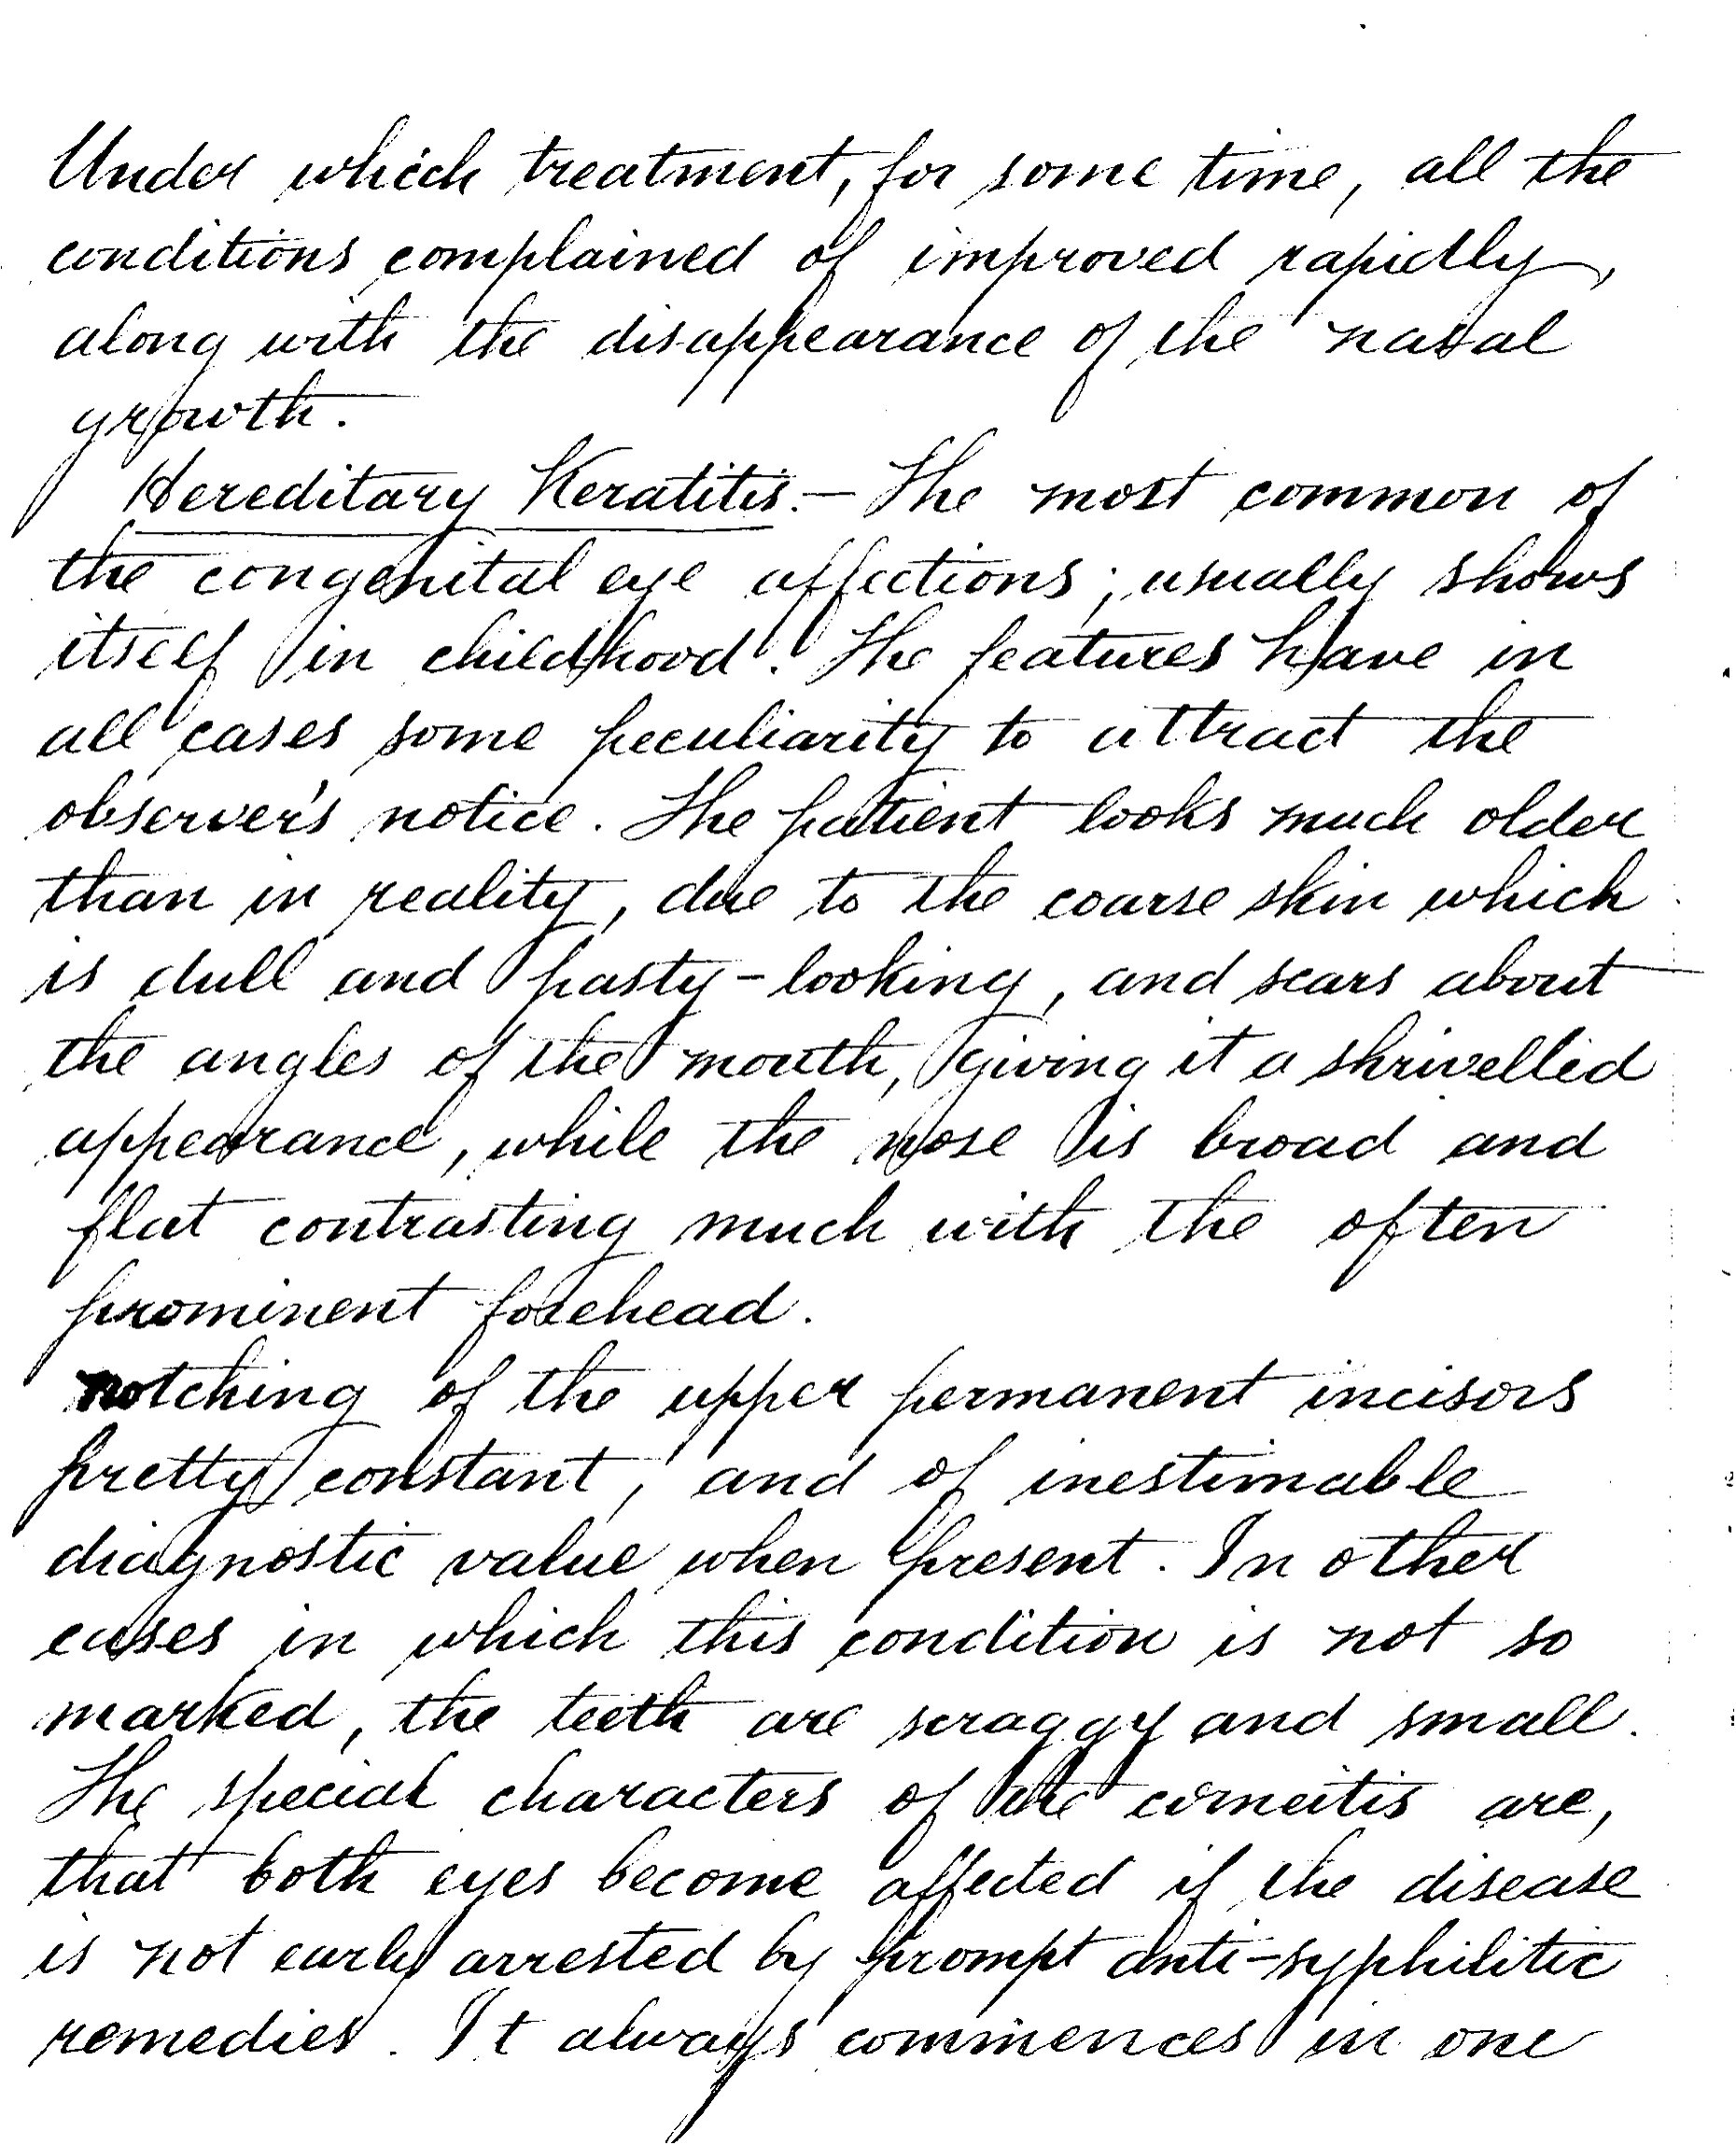 Under which treatment, for some time, all the
conditions complained of improved rapidly,
along with the disappearance of the nasal
growth.
Hereditary Keratitis. — The most common of
the congenital eye affections; usually shows
itself in childhood. The features have in
all cases some peculiarity to attract the
observer's notice. The patient looks much older
than in reality, due to the coarse skin which
is dull and pasty-looking, and scars about
the angles of the mouth, giving it a shrivelled
appearance, while the nose is broad and
flat contrasting much with the often
prominent forehead.
notching of the upper permanent incisors
pretty constant, and of inestimable
diagnostic value when present. In other
cases in which this condition is not so
marked, the teeth are scraggy and small.
The special characters of the corneitis are,
that both eyes become affected if the disease
is not early arrested by prompt anti-syphilitic
remedies. It always commences in one